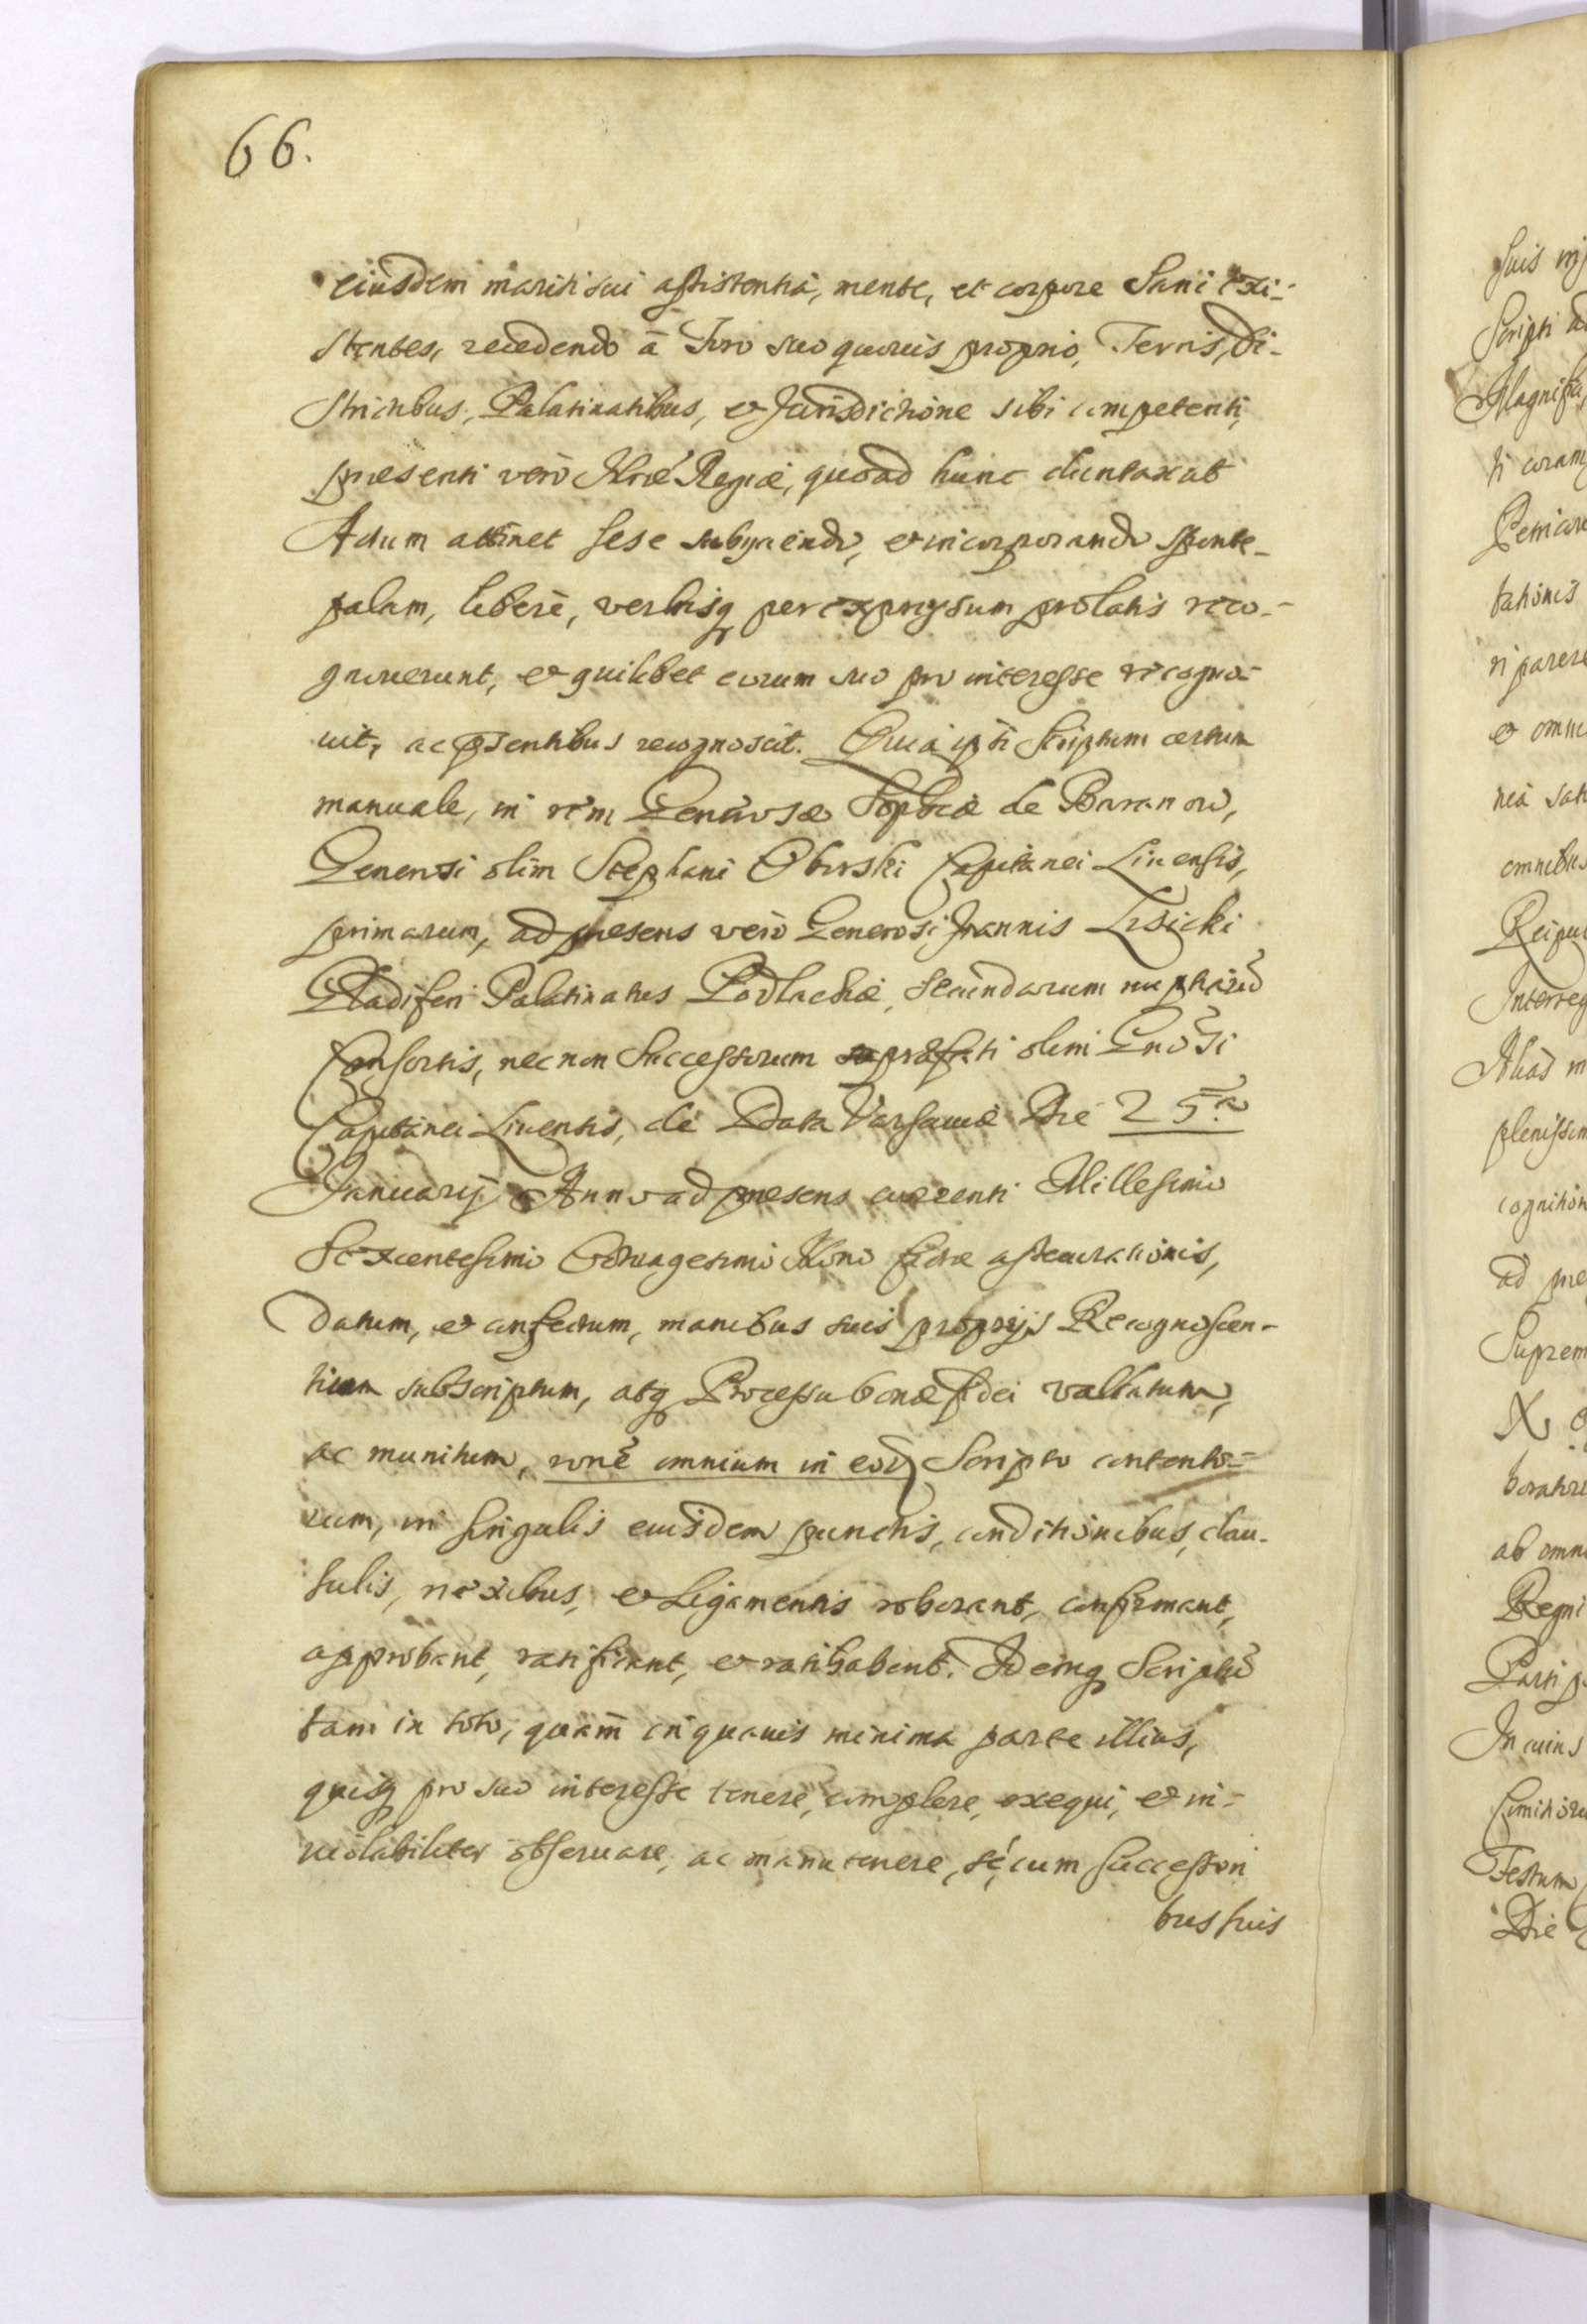 66.
eiusdem mariti sui assistentia, mente, et corpore Sani exi-
stentes, recedendo à Iure suo quovis proprio, Terris, Di-
strictibus, Palatinatibus, et Jurisdictione sibi competenti,
præsenti verò Mtricæ Regiæ, quoad hunc duntaxat
Actum attinet sese subyciendo, et incorporando sponte
palam, liberè, verbisq per expressum prolatis reco-
gnoverunt, et quilibet eorum suo pro interesse recogno-
vit, ac pntibus recognoscit. Quia ipsi Scriptum certum
manuale, in rem Generosæ Sophiæ de Baranow,
Generosi olim Stephani Oborski Capitanei Livensis,
primarum, ad præsens verò Generosi Joannis Lisicki
Gladiferi Palatinatus Podlachiæ, secundarum nuptiarũ
Consortis, nec non Successorum præfati olim Gnosi
Capitanei Livensis, de Data Varsaviæ Die 25ta
Januarij Anno ad præsens currenti Millesimo
Sexcentesimo Octuagesimo Nono fidæ assecurationis,
datum, et confectum, manibus suis proprijs Recognoscen-
tium subscriptum, atq Processu bonæ fidei vallatum,
ac munitum, rone omnium in eod Scripto contento-
rum, in singulis eiusdem punctis, conditionibus, clau-
sulis, nexibus, et Ligamentis roborant, confirmant,
approbant, ratificant, et ratihabent. Idemq Scriptũ
tam in toto, quàm in quavis minima parte illius,
quisq pro suo interesse tenere, complere, exequi, et in-
violabiliter observare, ac manutenere, sé, cum successori
bus suis